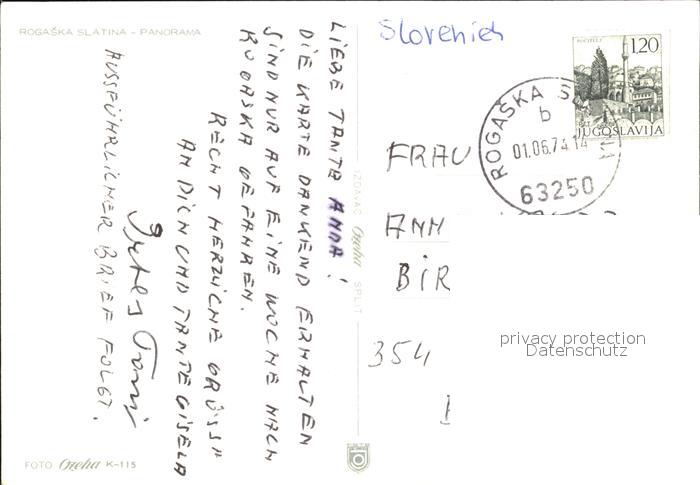 ROGAŠKA SLATINA - PANORAMA
LIEBE TANTE ANNA!
DIE KARTE DANKEND ERHALTEN
SIND NUR AUF EINE WOCHE NACH
ROGASKA GEFAHREN.
RECHT HERZLICHE GRÜSSE
AN DICH UND TANTE GISELA
Toni
AUSSFÜHRLICHER BRIEF FOLGT.
FOTO Ozeha K-115
IZDAVAČ Ozeha SPLIT
Slovenien
POČITELJ
1,20
JUGOSLAVIJA
ROGAŠKA SL
b
01.06.74.14
63250
FRAU
ANN
BIR
354
privacy protection
Datenschutz